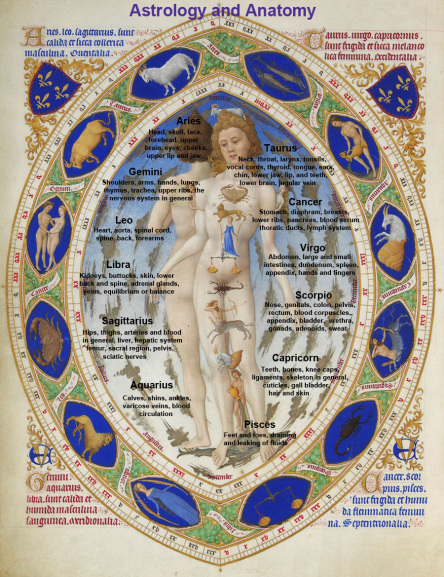 Astrology and Anatomy
Aries. leo. sagittarius. sunt
calida et sicca collerica
masculina. Orientalia.
Taurus. virgo. capricornus.
sunt frigida et sicca melanco
lica feminina. occidentalia.
Aries
Head, skull, face,
forehead, upper
brain, eyes, cheeks,
upper lip and jaw
Taurus
Neck, throat, larynx, tonsils,
vocal cords, thyroid, tongue, ears,
chin, lower jaw, lip, and teeth,
lower brain, jugular vein
Gemini
Shoulders, arms, hands, lungs,
thymus, trachea, upper ribs, the
nervous system in general
Cancer
Stomach, diaphram, breasts,
lower ribs, pancreas, blood serum
thoratic ducts, lymph system
Leo
Heart, aorta, spinal cord,
spine, back, forearms
Virgo
Abdomen, large and small
intestines, dutendum, spleen,
appendix, hands and fingers
Libra
Kidneys, buttocks, skin, lower
back and spine, adrenal glands,
veins, equilibrium or balance
Scorpio
Nose, genitals, colon, pelvis,
rectum, blood corpuscles,
appendix, bladder, urethra,
gonads, adenoids, sweat
Sagittarius
Hips, thighs, arteries and blood
in general, liver, hepatic system
femur, sacral region, pelvis,
sciatic nerves
Capricorn
Teeth, bones, knee caps,
ligaments, skeleton in general,
cuticles, gall bladder,
hair and skin
Aquarius
Calves, shins, ankles,
varicose veins, blood
circulation
Pisces
Feet and toes, draining
and leaking of fluids
Gemini.
aquarius.
libra. sunt calida et
humida masculina
sanguinea. meridionalia.
Cancer. scor
pius. pisces.
sunt frigida et humi
da flemmatica femini
na. Septentrionalia.